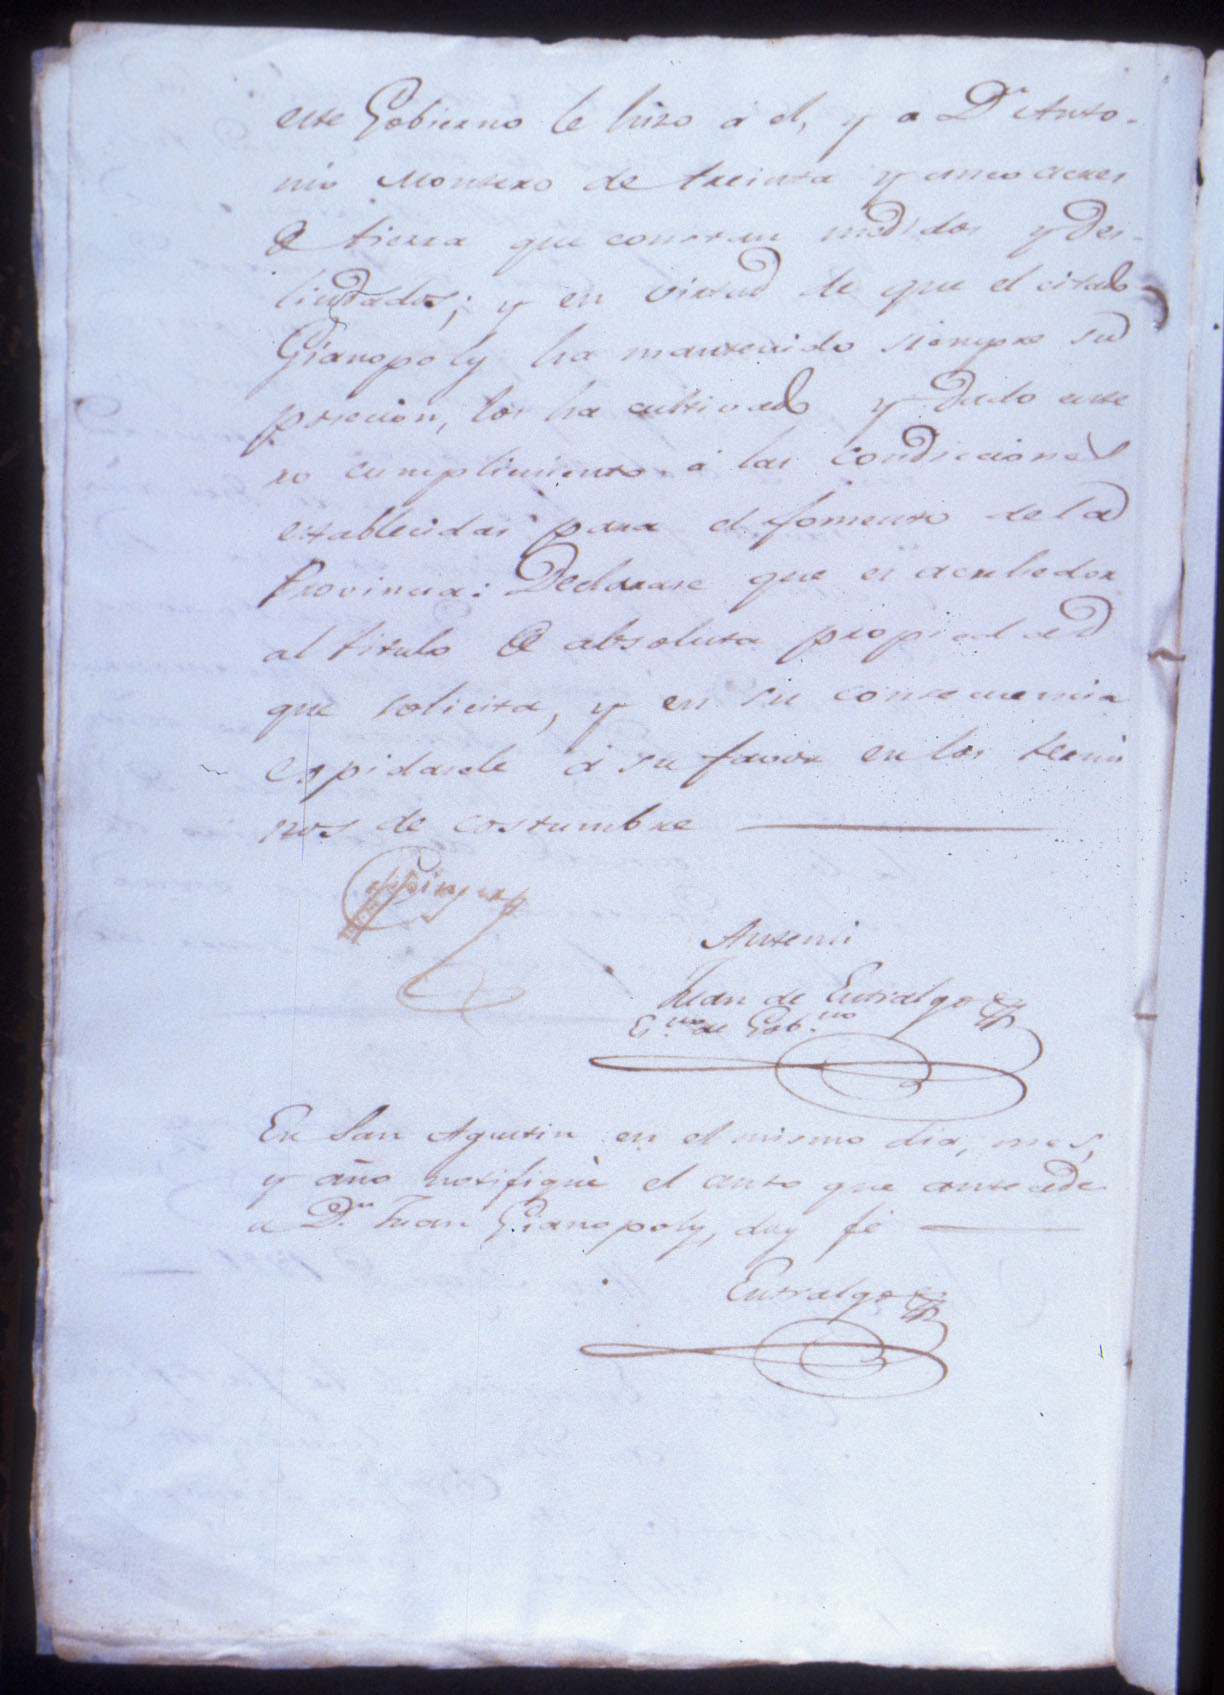 este Gobierno le hizo á el, y a Dn Anto-
nio Montero de treinta y cinco acres
de tierra que constan medidos y des-
lindados; y en virtud de que el citado
Gianopoly ha mantenido siempre su
posecion, los ha cultivado y dado ente
ro cumplimiento á las condiciones
establecidas para el fomento de la
Provincia: Declarase que es acrehedor
al titulo de absoluta propiedad
que solicita, y en su consecuencia
espidasele á su favor en los termi
nos de costumbre
Coppinger
Antemi
Juan de Entralgo
Esno de Gobno
En San Agustin en el mismo dia, mes,
y año notifiquè el auto que antecede
a Dn Juan Gianopoly, doy fé
Entralgo